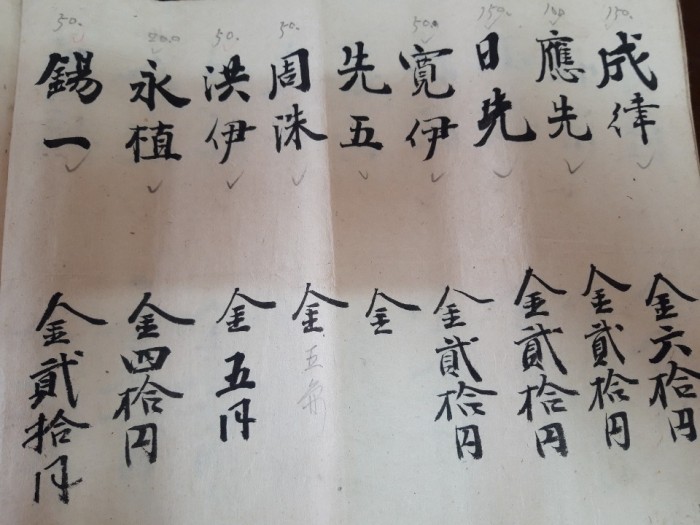 150.
成律
金六拾円
100
應先
金貳拾円
150.
日先
金貳拾円
500
寛伊
金貳拾円
先五
金
50.
周洙
金
50.
洪伊
金五円
200.0
永植
金四拾円
50.
錫一
金貳拾円